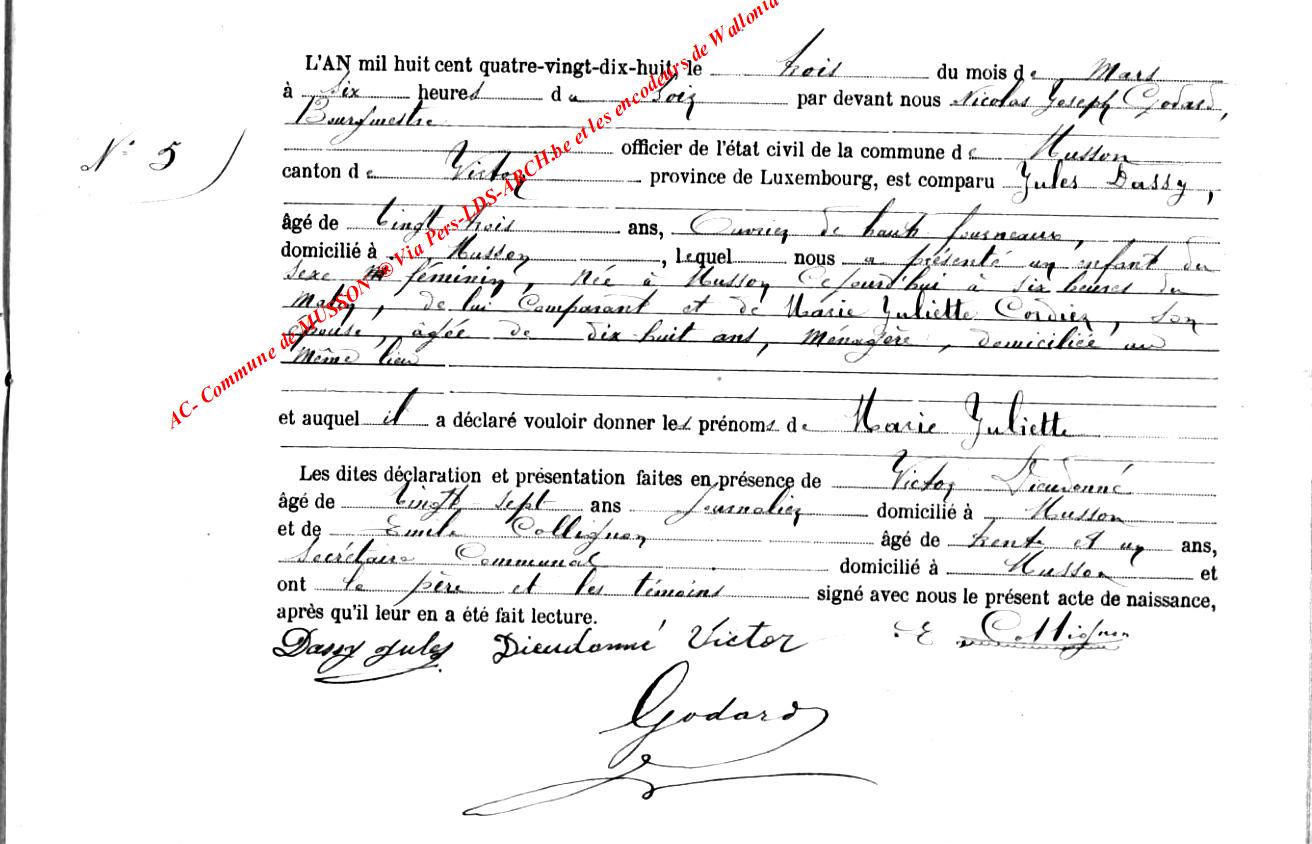 L'AN mil huit cent quatre-vingt-dix-huit, le trois du mois de Mars
à six heures du soir par devant nous Nicolas Joseph Godard,
Bourgmestre
N° 5 officier de l'état civil de la commune de Musson
canton de Virton province de Luxembourg, est comparu Jules Dassy,
âgé de vingt trois ans, Ouvrier de hauts fourneaux,
domicilié à Musson, lequel nous a présenté un enfant du
sexe féminin, née à Musson cejourd'hui à six heures du
matin, de lui Comparant et de Marie Juliette Cordier, son
épouse, âgée de dix-huit ans, ménagère, domiciliée au
même lieu
et auquel il a déclaré vouloir donner les prénoms de Marie Juliette
Les dites déclaration et présentation faites en présence de Victor Dieudonné
âgé de vingt sept ans journalier domicilié à Musson
et de Emile Collignon âgé de trente et un ans,
Secrétaire Communal domicilié à Musson et
ont le père et les témoins signé avec nous le présent acte de naissance,
après qu'il leur en a été fait lecture.
Dassy Jules Dieudonné Victor E Collignon
Godard
AC- Commune de MUSSON ® Via Pers-LDS-ARCH.be et les encodeurs de Wallonia